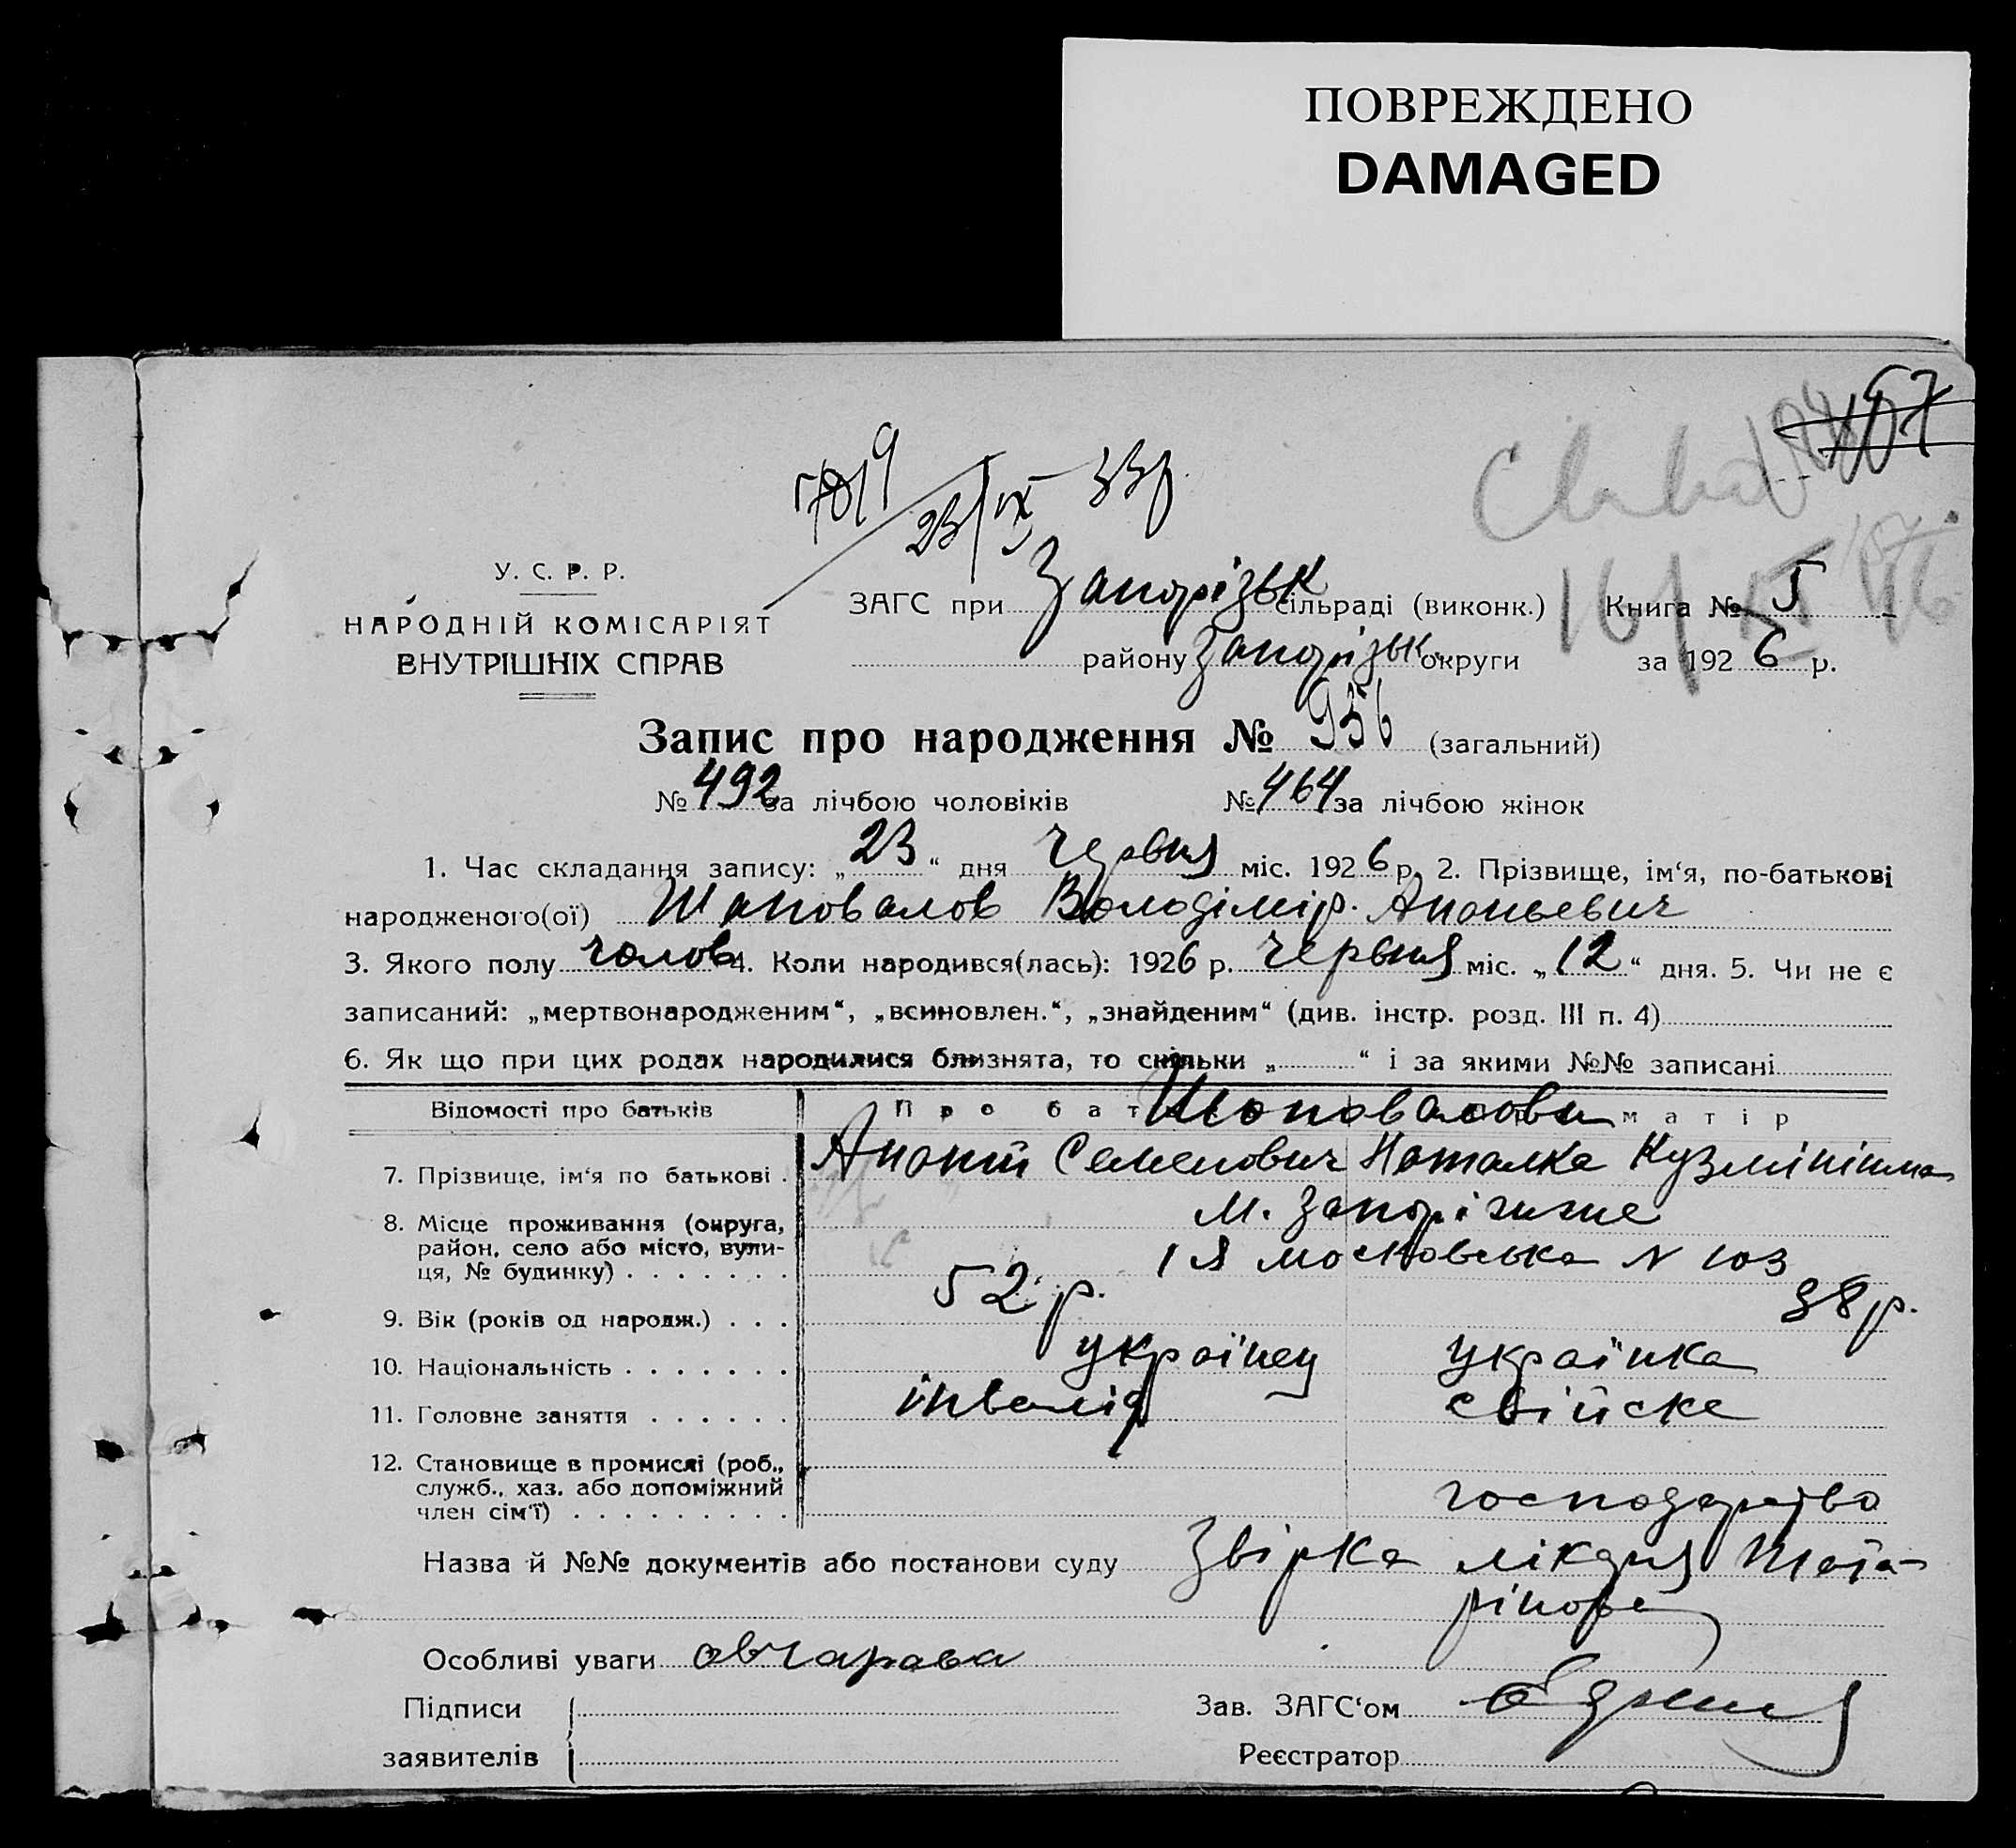 ПОВРЕЖДЕНО
DAMAGED
157
23/IX 33р.
У. С. Р. Р.
НАРОДНІЙ КОМІСАРІЯТ
ВНУТРІШНІХ СПРАВ
ЗАГС при Запорізьк сільраді (виконк.) Книга № 5
району Запорізьк округи за 1926 р.
Запис про народження № 956 (загальний)
№ 492 за лічбою чоловіків № 464 за лічбою жінок
1. Час складання запису: „23“ дня червня міс. 1926 р. 2. Прізвище, ім‘я, по-батькові
народженого(ої) Шаповалов Володімір. Ананьевич
3. Якого полу чолов 4. Коли народився(лась): 1926 р. червня міс. „12“ дня. 5. Чи не є
записаний: „мертвонародженим“, „всиновлен.“, „знайденим“ (див. інстр. розд. III п. 4)
6. Як що при цих родах народилися близнята, то скільки „ “ і за якими №№ записані
Відомості про батьків Про бат Шаповалови матір
7. Прізвище, ім‘я по батькові . Ананій Семенович Наталка Кузмінішна
8. Місце проживання (округа, м. Запоріжже
район, село або місто, вули- 1 я московська N 103
ця, № будинку) . . . . . . .
9. Вік (років од народж.) . . . 52 р. 38 р.
10. Національність . . . . . . . українец українка
11. Головне заняття . . . . . . інвалід свійске
12. Становище в промислі (роб.,
служб., хаз. або допоміжний господарство
член сім‘ї) . . . . . . . . . .
Назва й №№ документів або постанови суду Звірка лікаря Шата-
рінова
Особливі уваги овчарова
Підписи Зав. ЗАГС‘ом
заявителів Реєстратор